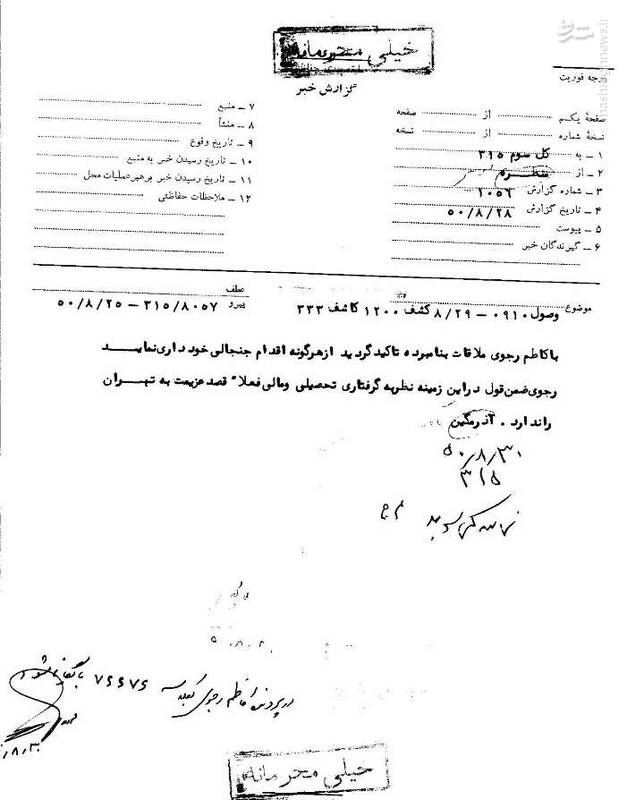 خیلی محرمانه
گزارش خبر
درجه فوریت
صفحهٔ یکم از صفحه
نسخهٔ شماره از نسخه
۱ – به کل سوم ۳۱۵
۲ – از
۳ – شماره گزارش ۱۰۵۶
۴ – تاریخ گزارش ۵۰/۸/۲۸
۵ – پیوست
۶ – گیرندگان خبر
۷ – منبع
۸ – منشأ
۹ – تاریخ وقوع
۱۰ – تاریخ رسیدن خبر به منبع
۱۱ – تاریخ رسیدن خبر برهبر عملیات محل
۱۲ – ملاحظات حفاظتی
موضوع
وصول ۰۹۱۰ – ۸/۲۹ کشف ۱۲۰۰ کاشف ۳۳۳
عطف
پیرو ۳۱۵/۸۰۵۷ – ۵۰/۸/۲۵
با کاظم رجوی ملاقات بنامبرده تاکید گردید از هرگونه اقدام جنجالی خود داری نماید
رجوی ضمن قول در این زمینه نظر به گرفتاری تحصیلی و مالی فعلا" قصد عزیمت به تهران
راندارد . آذرمگین
۵۰/۸/۳۰
۳۱۵
در پرونده کاظم رجوی بکلاسه ۷۶۶۷۶ بایگانی شود
خیلی محرمانه
mashreghnews.ir